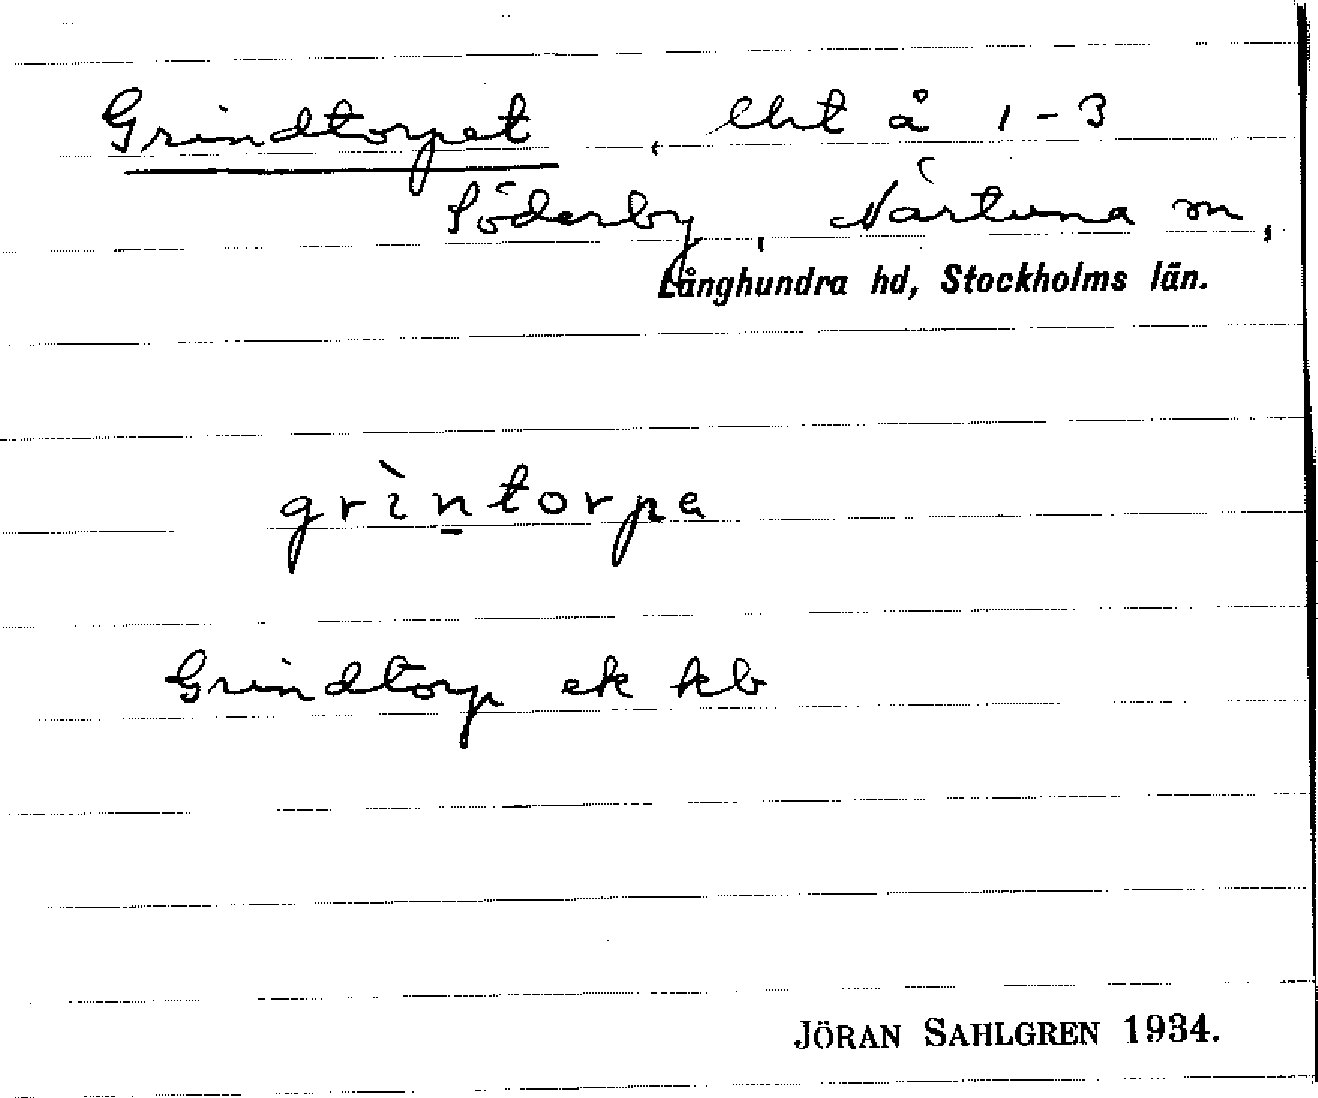 Grindtorpet, lht å 1-3
Söderby, Närtuna sn,
Långhundra hd, Stockholms län.
grìntorpa
Grindtorp ek kb
JÖRAN SAHLGREN 1934.